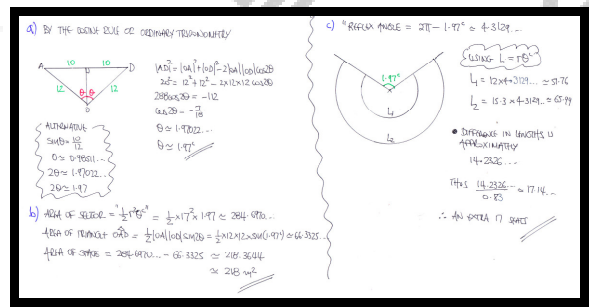 a) BY THE COSINE RULE OR ORDINARY TRIGONOMETRY
A 10 10 D
12 θ θ 12
O
|AD|² = |OA|² + |OD|² - 2|OA||OD|cos2θ
20² = 12² + 12² - 2×12×12 cos2θ
288cos2θ = -112
cos2θ = -7/18
θ ≃ 1.97022...
θ ≃ 1.97ᶜ
ALTERNATIVE
sinθ = 10/12
θ ≃ 0.98511...
2θ ≃ 1.97022...
2θ ≃ 1.97
b) AREA OF SECTOR = "½r²θᶜ" = ½×17²×1.97 ≃ 284.6970...
AREA OF TRIANGLE OAD = ½|OA||OD|sin2θ = ½×12×12×sin(1.97ᶜ) ≃ 66.3325...
AREA OF STAGE = 284.6970... - 66.3325 ≃ 218.3644
≃ 218 m²
c) "REFLEX ANGLE = 2π - 1.97ᶜ ≃ 4.3129...
1.97ᶜ
L₁
L₂
USING L = rθᶜ
L₁ = 12×4.3129... ≃ 51.76
L₂ = 15.3×4.3129.. ≃ 65.99
• DIFFERENCE IN LENGTHS IS
APPROXIMATELY
14.2326...
THUS 14.2326.../0.83 ≃ 17.14...
∴ AN EXTRA 17 SEATS